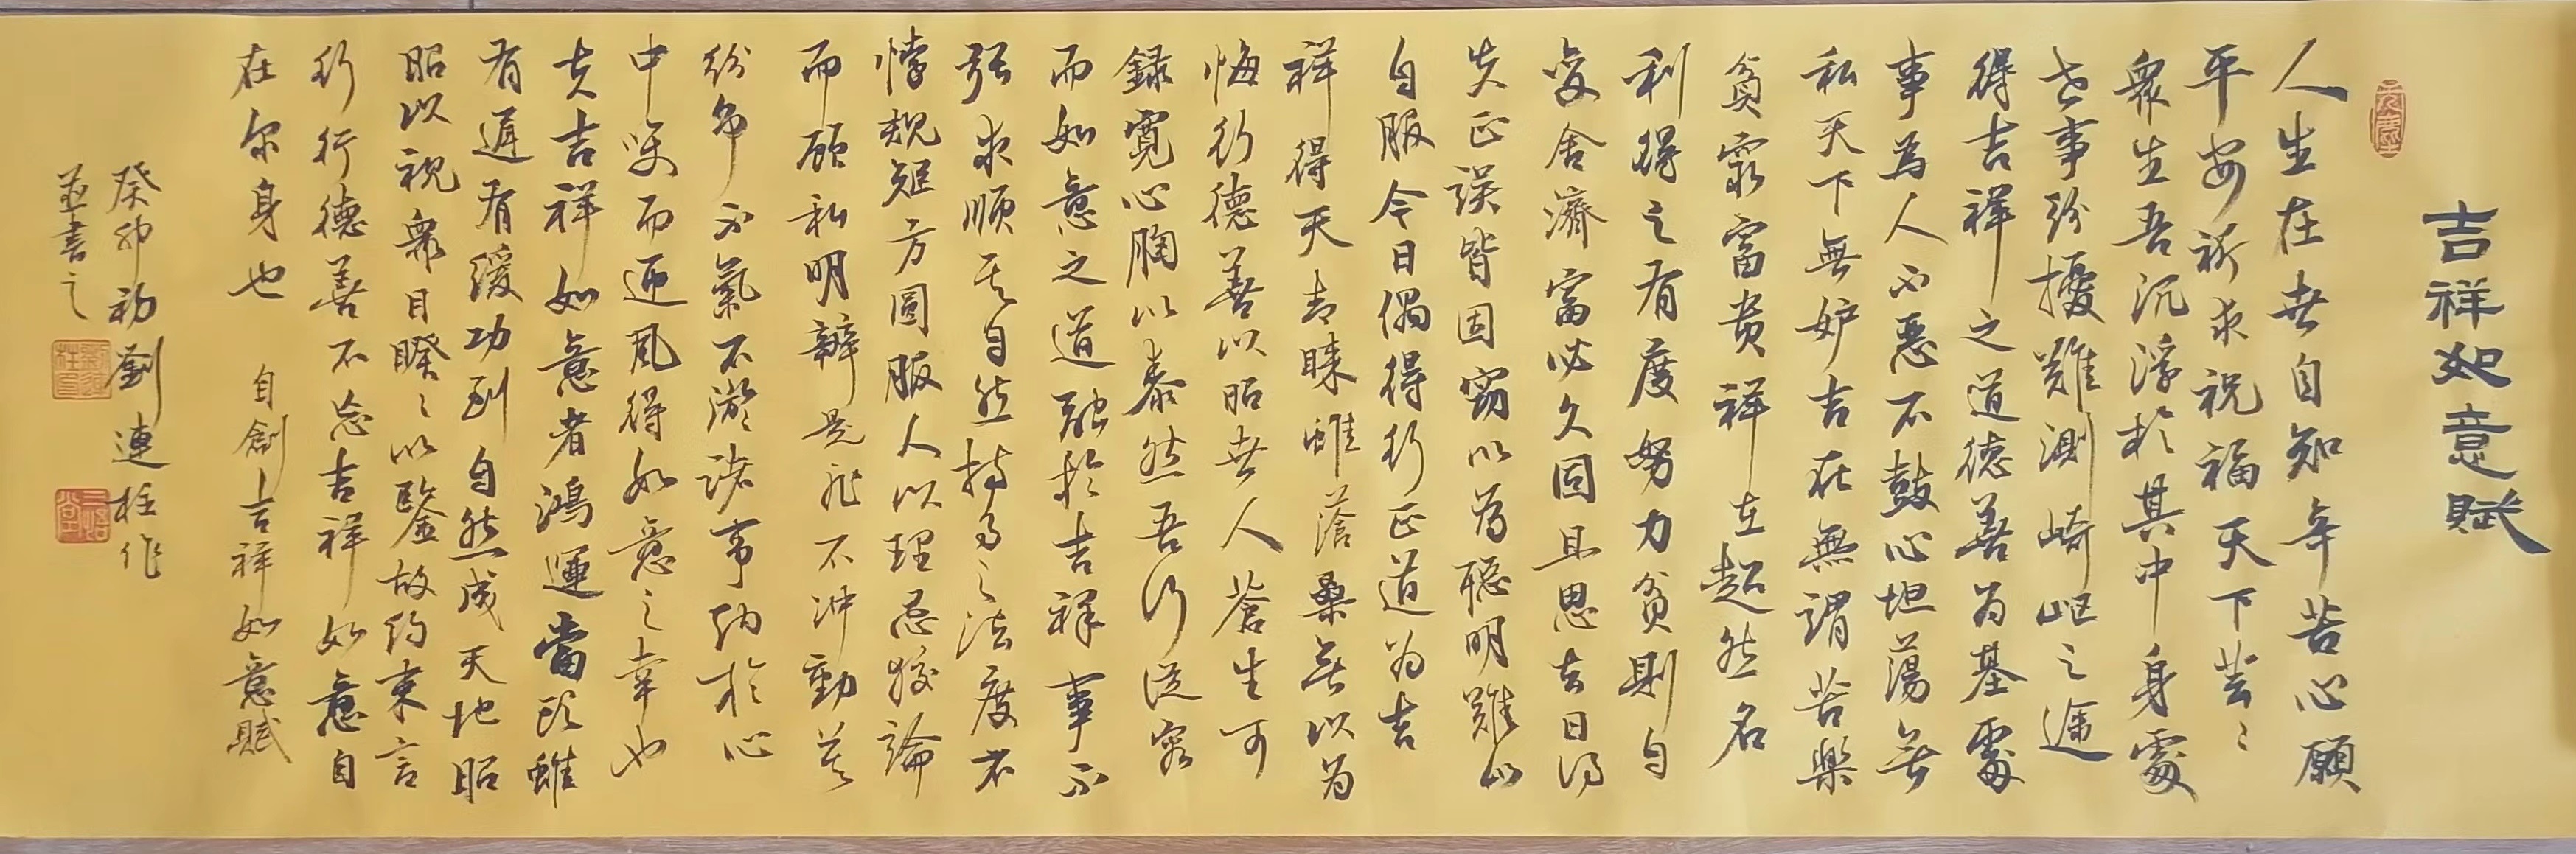 吉祥如意賦
人生在世自知年苦心願
平安祈求祝福天下芸〻
眾生吾沉浮於其中身處
世事紛擾難測崎岖之途
得吉祥之道德善为基處
事為人不惡不鼓心坦蕩無
私天下無妒吉在無謂苦樂
貧窮富贵祥在超然名
利得之有度努力貧則自
变舍濟富必久固且思去日得
失正误皆因窃以为聪明難以
自服今日偶得行正道为吉
祥得天青睐雖蒼桑無以为
悔行德善以昭世人蒼生可
錄寬心胸以泰然吾行從容
而如意之道融於吉祥事不
强求順其自然持为之法度不
悖規矩方圓服人以理忌狡論
而顾私明辨是非不冲動
纷争不氣不諸事納於心
中笑而迎風得如意之幸也
夫吉祥如意者鴻運當頭雖
有遲有缓功到自然成天地昭
昭以視眾目睽〻以鑒故约束言
行行德善不忘吉祥如意自
在尔身也 自創吉祥如意賦
癸卯初劉連柱作
並書之